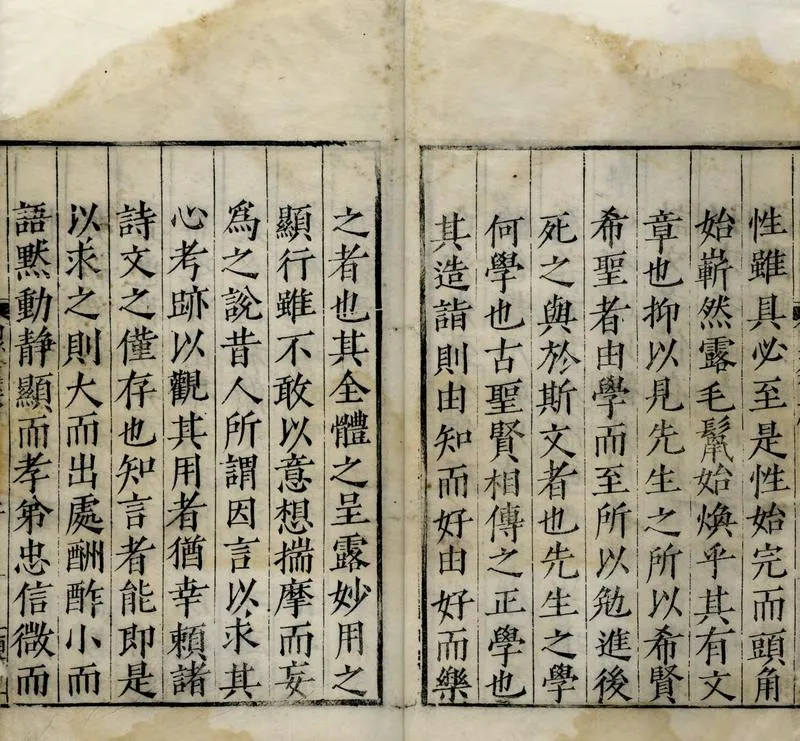 性雖具必至是性始完而頭角
始嶄然露毛髦始煥乎其有文
章也抑以見先生之所以希賢
希聖者由學而至所以勉進後
死之與於斯文者也先生之學
何學也古聖賢相傳之正學也
其造詣則由知而好由好而樂
之者也其全體之呈露妙用之
顯行雖不敢以意想揣摩而妄
為之說昔人所謂因言以求其
心考跡以觀其用者猶幸賴諸
詩文之僅存也知言者能即是
以求之則大而出處酬酢小而
語默動靜顯而孝弟忠信微而